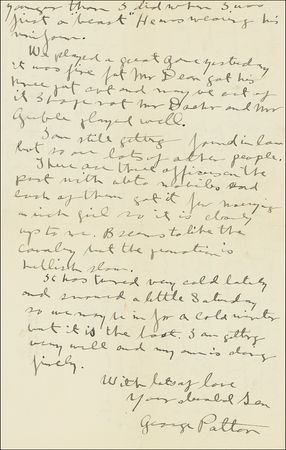 younger than I did when I was
just a "beast" He was wearing his
uniform.
We played a great game yesterday
it was fine but Mr Dean got his
knee put out and may be out of
it I hope not Mr Doctor and Mr
Gribble played well.
I am still getting found in law
but so are lots of other people.
There are three officers in the
post with auto mobiles and
each of them got it for marrying
a rich girl so it is clearly
up to me. B seems to like the
cavalry but the promotion is
hellish slow.
It has turned very cold lately
and snowed a little Saturday
so we may be in for a cold winter
but it is the best. I am getting
very well and my arm is doing
finely.
With lots of love
Your devoted Son
George Patton